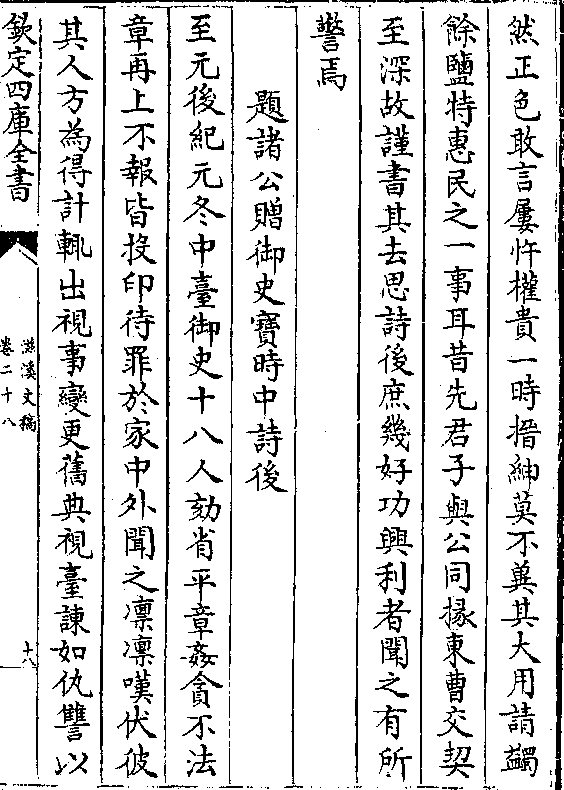 然正色敢言屢忤權貴一時搢紳莫不冀其大用請蠲
餘鹽特惠民之一事耳昔先君子與公同掾東曹交契
至深故謹書其去思詩後庶幾好功興利者聞之有所
警焉
題諸公贈御史寶時中詩後
至元後紀元冬中臺御史十八人劾省平章姦貪不法
章再上不報皆投印待罪於家中外聞之凛凛嘆伏彼
其人方為得計輒出視事變更舊典視臺諫如仇讐以
欽定四庫全書
滋溪文稿
卷二十八
十八